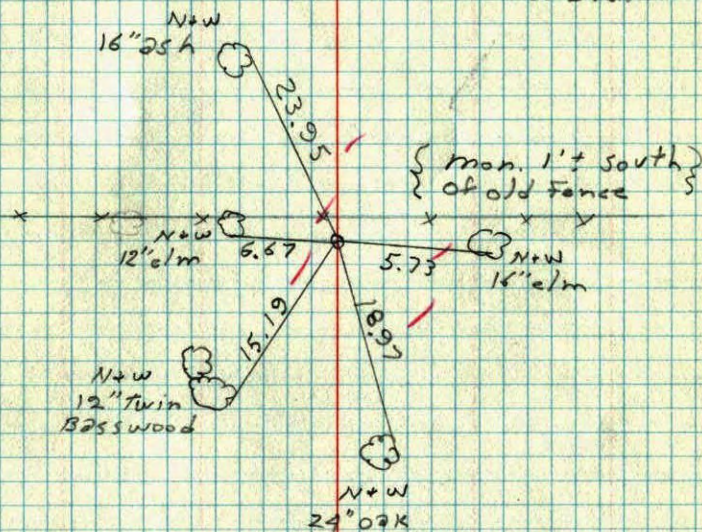 N+W
16" ash
23.95
{ mon. 1'± south }
of old Fence
N+W
12" elm
6.67
5.73
N+W
16" elm
15.19
18.97
N+W
12" Twin
Basswood
N+W
24" oak